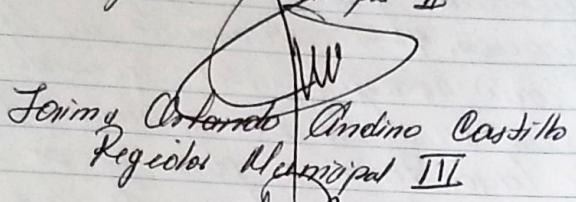 Jaimy Orlando Andino Castillo
Regidor Municipal III